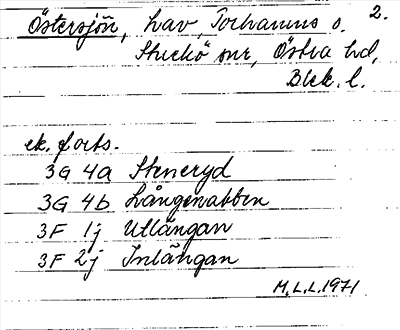 2.
Östersjön, hav, Torhamns o.
Sturkö snr, Östra hd,
Blek. l.
ek. forts.
3G 4a Steneryd
3G 4b Långenabben
3F 1j Utlängan
3F 2j Inlängan
M.L.L.1971